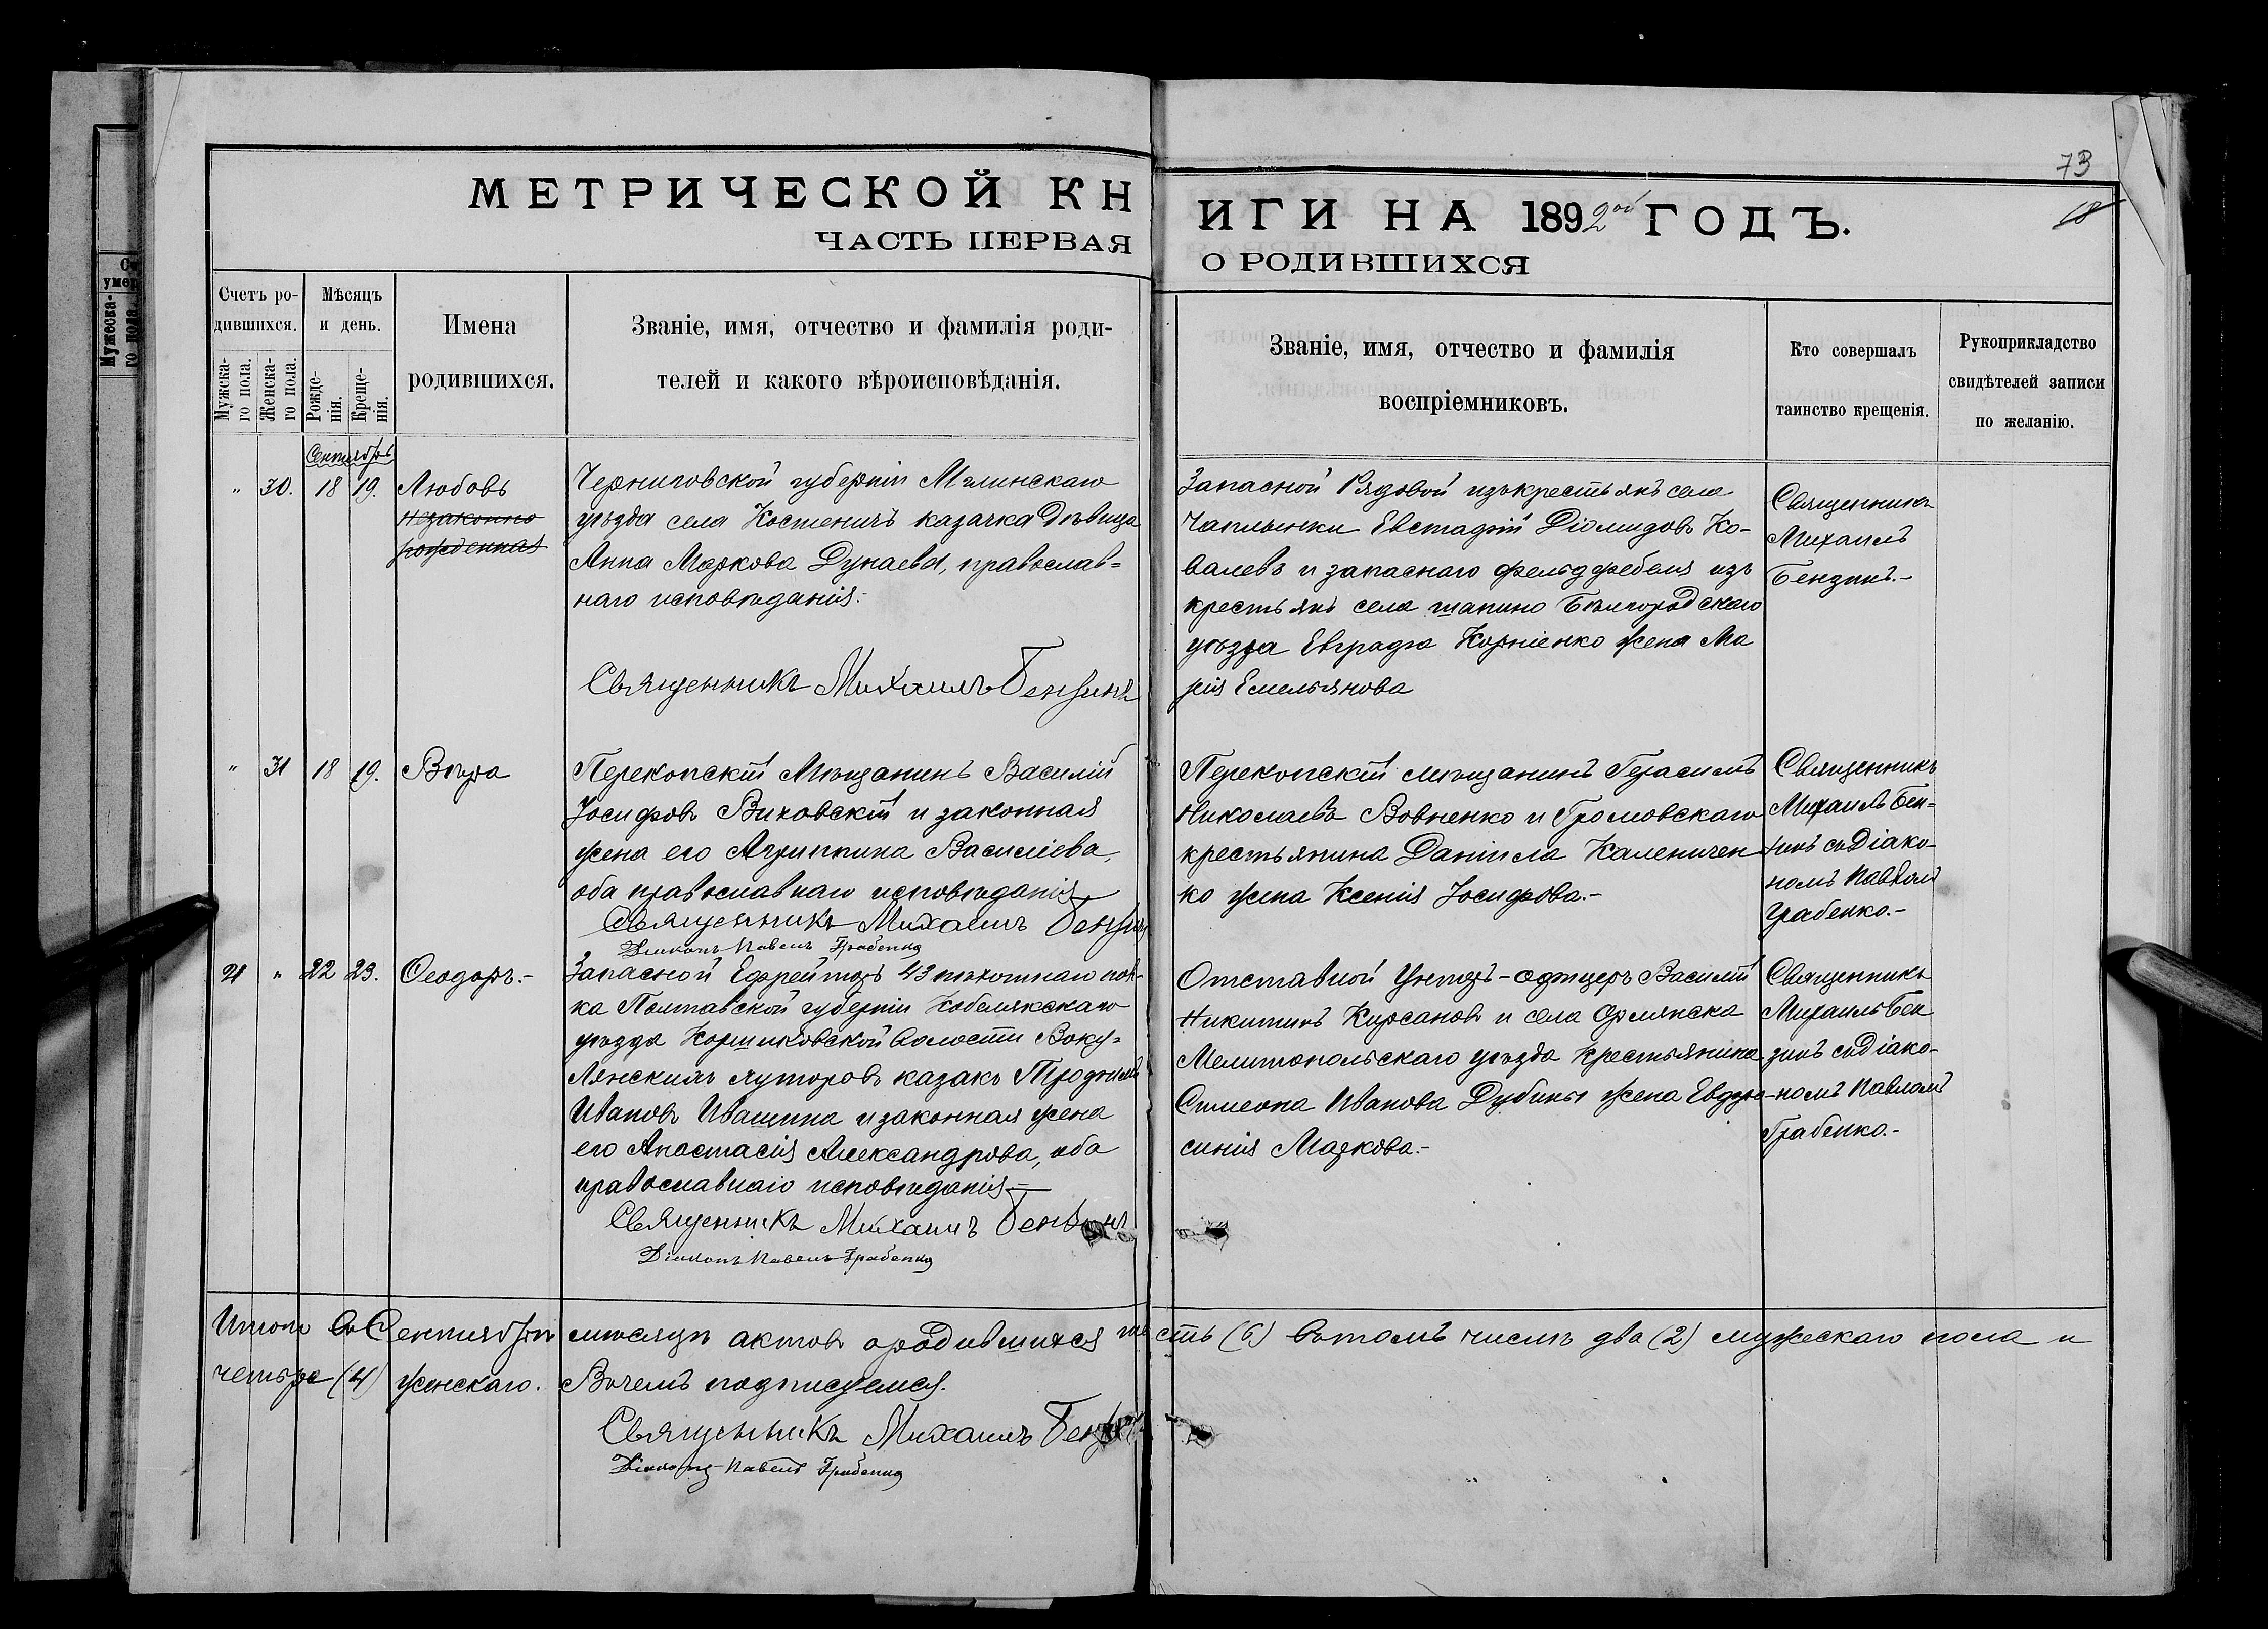 73
18
МЕТРИЧЕСКОЙ КНИГИ НА 1892ой ГОДЪ.
ЧАСТЬ ПЕРВАЯ О РОДИВШИХСЯ
Счетъ ро-
дившихся.
Мужска-
го пола.
Женска-
го пола.
Мѣсяцъ
и день.
Рожде-
нія.
Креще-
нія.
Имена
родившихся.
Званіе, имя, отчество и фамилія роди-
телей и какого вѣроисповѣданія.
Званіе, имя, отчество и фамилія
воспріемниковъ.
Кто совершалъ
таинство крещенія.
Рукоприкладство
свидѣтелей записи
по желанію.
Сентябрь
" 30. 18 19.
Любовь
незаконно
рожденная
Черниговской губерніи Мглинскаго
уѣзда села Костеничъ казачка дѣвица
Анна Маркова Дунаева, православ=
наго исповѣданія.
Священникъ Михаилъ Бензинъ
Запасной Рядовой изъ крестьянъ села
Чаплынки Евстафій Діомидовъ Ко-
валевъ и запаснаго фельдфебеля изъ
крестьянъ села шапино Бѣлгородскаго
уѣзда Евграфа Корніенко жена Ма
рія Емельянова
Священникъ
Михаилъ
Бензинъ.-
" 31 18 19.
Вѣра
Перекопскій Мѣщанинъ Василій
Іосифовъ Виховскій и законная
жена его Агриппина Василіева,
оба православнаго исповѣданія
Священникъ Михаилъ Бензинъ
Діаконъ Павелъ Грабенко
Перекопскій мѣщанинъ Герасимъ
Николаевъ Вовненко и Громовскаго
крестьянина Даніила Каленичен
ко жена Ксенія Іосифова.-
Священникъ
Михаилъ Бен=
зинъ съ Діако-
номъ Павломъ
Грабенко.-
21 " 22 23.
Ѳеодоръ.-
Запасной Ефрейторъ 43 пѣхотнаго пол-
ка Полтавской губерніи Кобелякскаго
уѣзда
волости Воку=
казакъ Трофимъ
Ивановъ Иващина и законная жена
его Анастасія Александрова, оба
православнаго исповѣданія.-
Священникъ Михаилъ Бензинъ
Діаконъ Павелъ Грабенко
Отставной Унтеръ-офицеръ Василій
Никитинъ Кирсановъ и села
Мелитопольскаго уѣзда крестьянина
Симеона Иванова Дубины жена Евфро-
синія Маркова.-
Священникъ
Михаилъ Бен
зинъ съ Діако-
номъ Павломъ
Грабенко.-
Итого въ Сентябрѣ мѣсяцѣ актовъ о родившихся шесть (6) въ томъ числѣ два (2) мужескаго пола и
четыре (4) женскаго. Въ чемъ подписуемся.
Священникъ Михаилъ Бензинъ
Діаконъ Павелъ Грабенко